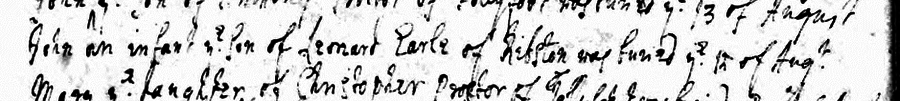 John yᵉ Son of Proctor of was buried yᵉ 13 of August
John an infant yᵉ Son of Leonard Earle of Ribston was buried yᵉ 15 of Augᵗ
Mary yᵉ daughter of Christopher Proctor of